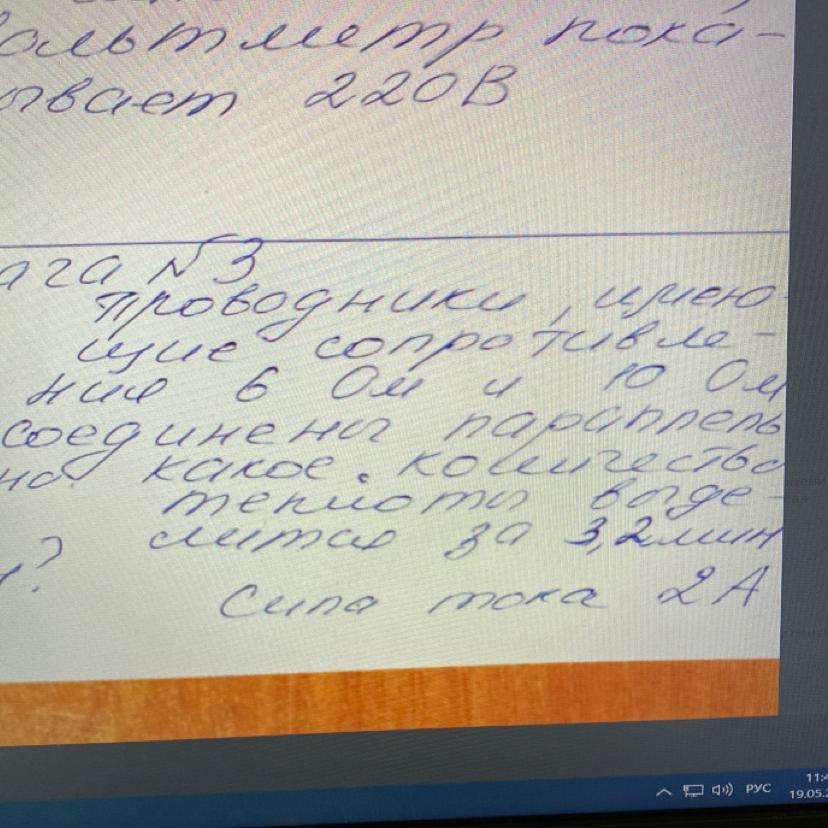 вольтметр пока-
ывает 220В
ача №3
проводники, имею-
щие сопротивле-
ния 6 Ом и 10 Ом
соединены параллель
но. какое. количество
теплоты выде-
лится за 3,2 мин
?
Сила тока 2А
11:4
РУС
19.05.2